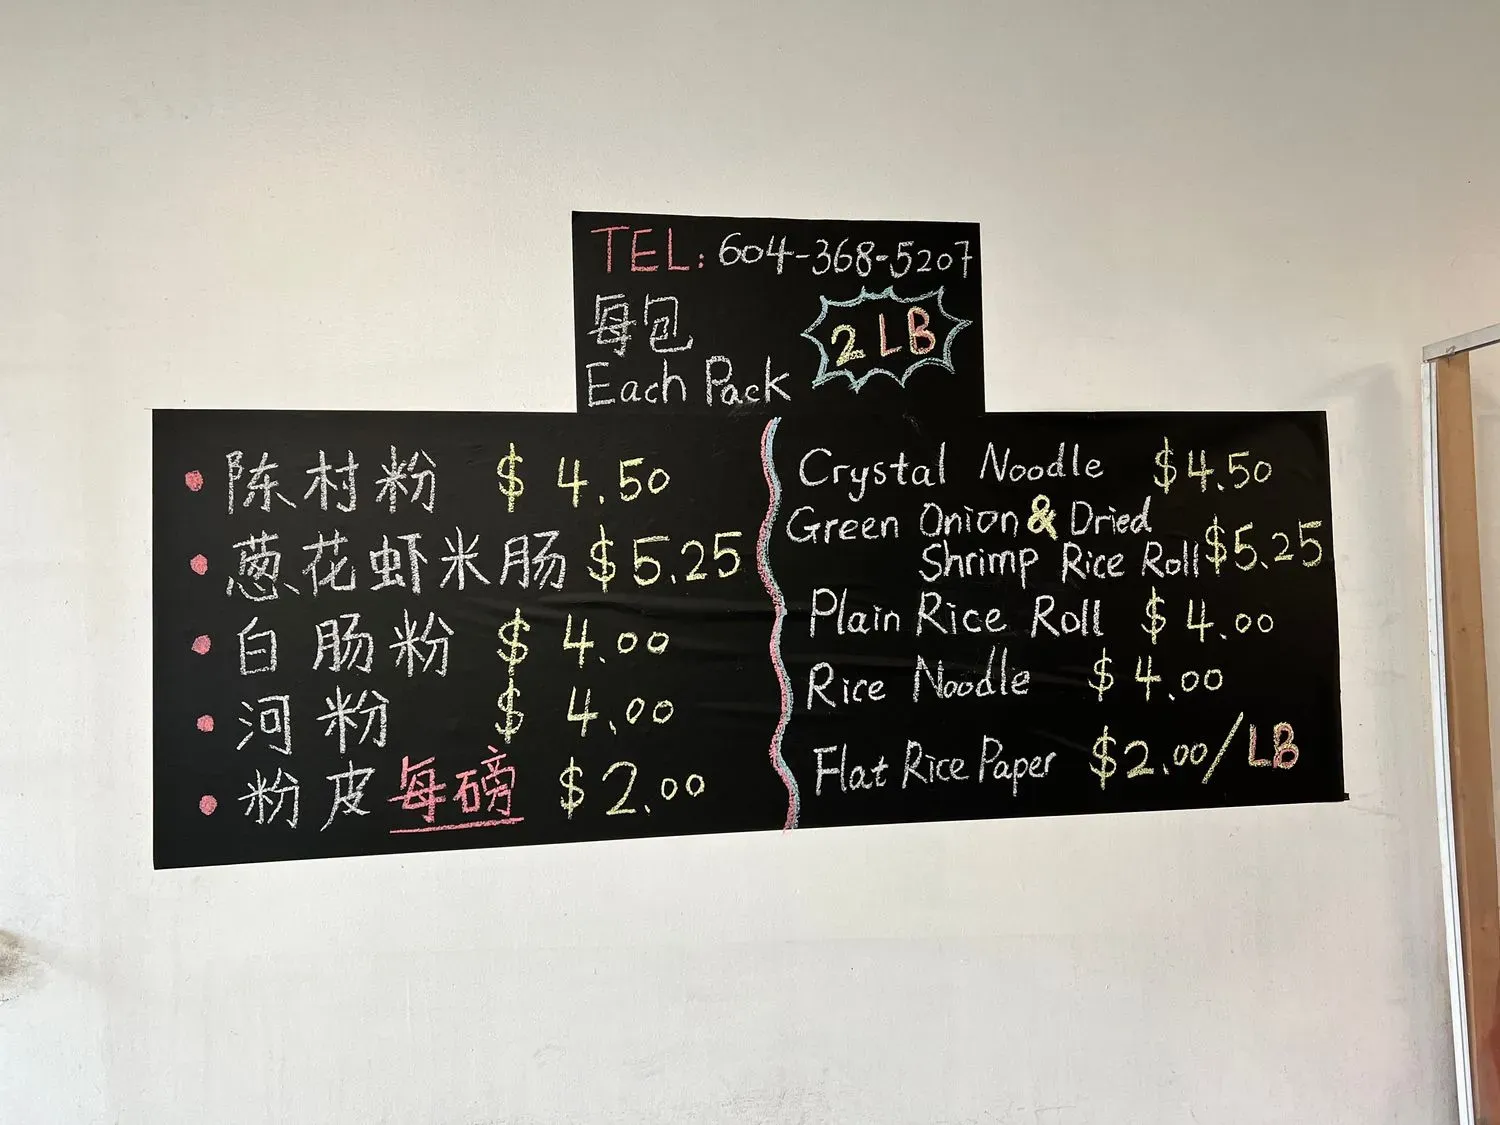 TEL: 604-368-5207
每包
2 LB
Each Pack
• 陈村粉 $4.50
• 葱花虾米肠 $5.25
• 白肠粉 $4.00
• 河粉 $4.00
• 粉皮每磅 $2.00
Crystal Noodle $4.50
Green Onion & Dried
Shrimp Rice Roll $5.25
Plain Rice Roll $4.00
Rice Noodle $4.00
Flat Rice Paper $2.00/LB